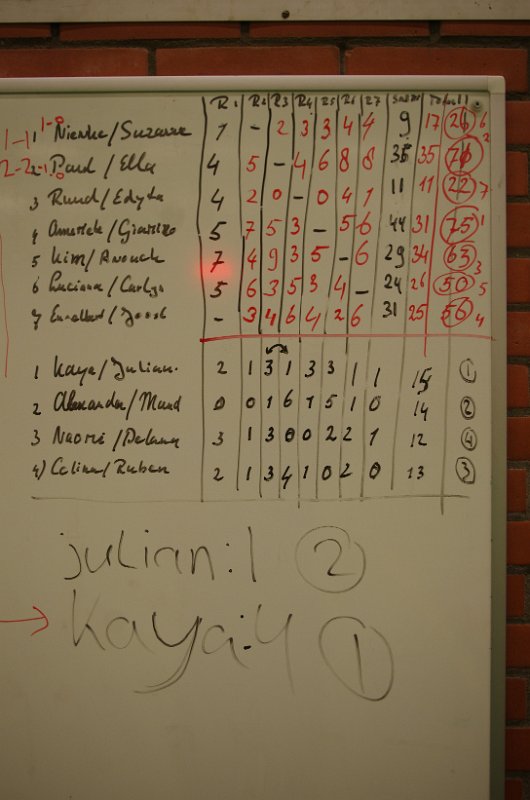 R1 R2 R3 R4 R5 R6 R7 Totaal
1-0
1-1 1 Nienke/Suzanne 1 - 2 3 3 4 4 9 17 26 6
2-2 2 Paul/Ella 4 5 - 4 6 8 8 35 35
3 Ruud/Edyta 4 2 0 - 0 4 1 11 11 22 7
4 5 7 5 3 - 5 6 44 31 75 1
5 Kim/Anouck 7 4 9 3 5 - 6 29 34 63 3
6 Luciana/ 5 6 3 5 3 4 - 24 26 50 5
7 /Joost - 3 4 6 4 2 6 31 25 56 4
1 Kaya/Julian. 2 1 3 1 3 3 1 1 15 1
2 Alexander/Maud 0 0 1 6 1 5 1 0 14 2
3 Naomi/ 3 1 3 0 0 2 2 1 12 4
4) Celina/Ruben 2 1 3 4 1 0 2 0 13 3
julian:1 2
kaya:4 1